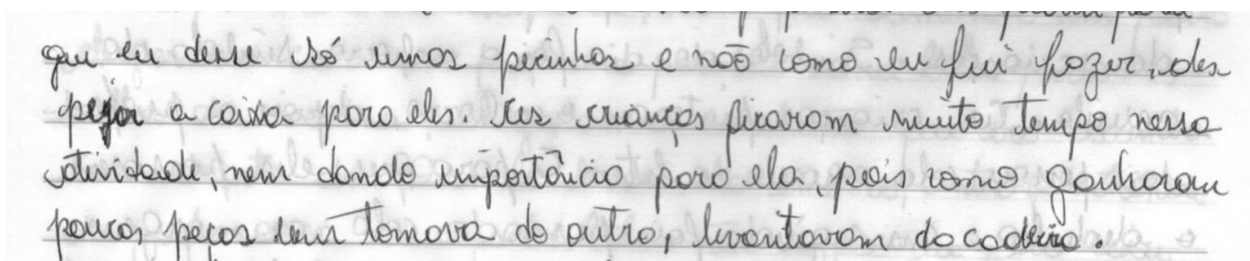 que eu desse só umas pecinhas e não como eu fui fazer, des
pejar a caixa para eles. As crianças ficaram muito tempo nessa
atividade, nem dando importância para ela, pois como ganharam
poucas peças um tomava do outro, levantavam da cadeira.